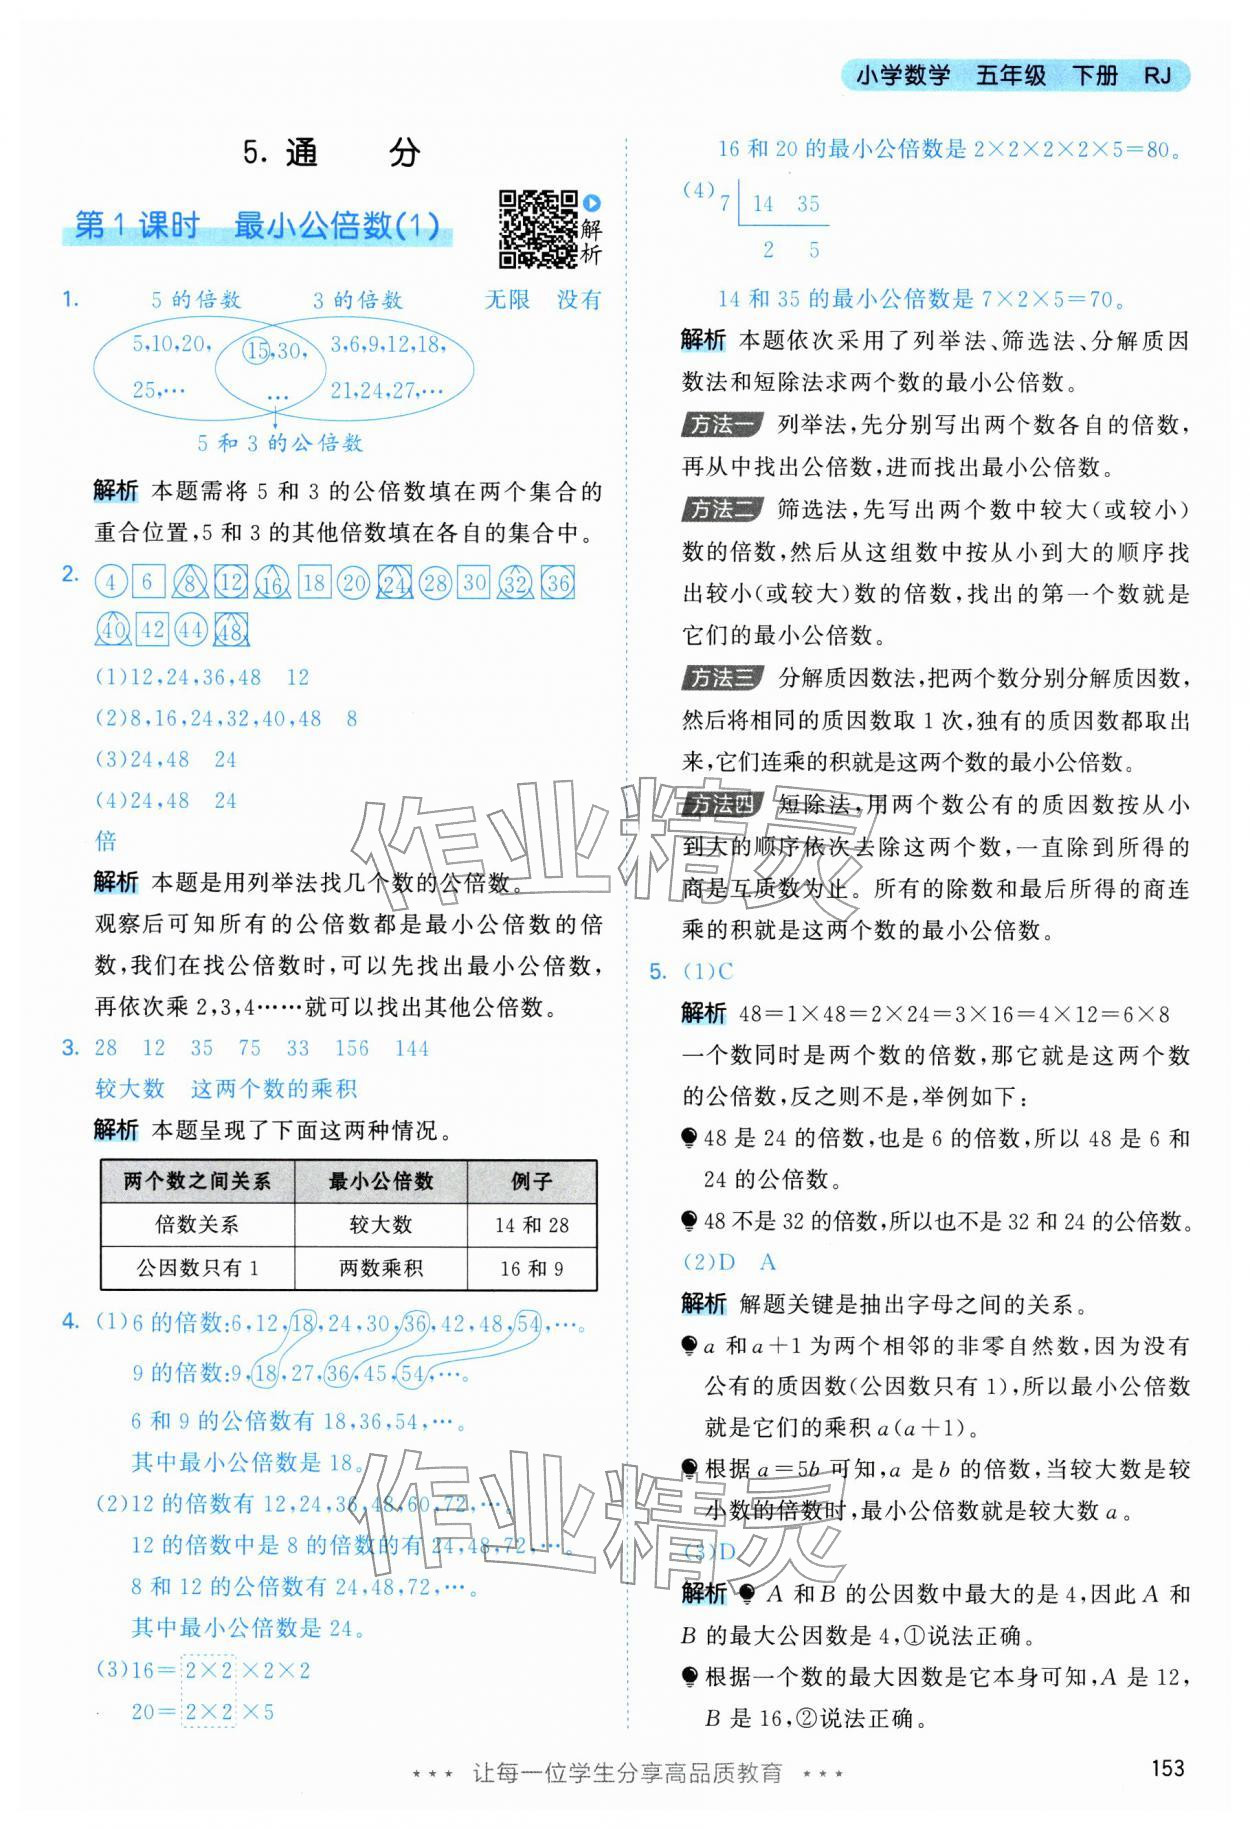 小学数学 五年级 下册 RJ
5. 通 分
第1课时 最小公倍数(1)
解析
1. 5的倍数 3的倍数 无限 没有
5,10,20, 15,30, 3,6,9,12,18,
25,… … 21,24,27,…
5和3的公倍数
解析 本题需将5和3的公倍数填在两个集合的
重合位置,5和3的其他倍数填在各自的集合中。
2. 4 6 8 12 16 18 20 24 28 30 32 36
40 42 44 48
(1)12,24,36,48 12
(2)8,16,24,32,40,48 8
(3)24,48 24
(4)24,48 24
倍
解析 本题是用列举法找几个数的公倍数。
观察后可知所有的公倍数都是最小公倍数的倍
数,我们在找公倍数时,可以先找出最小公倍数,
再依次乘2,3,4……就可以找出其他公倍数。
3. 28 12 35 75 33 156 144
较大数 这两个数的乘积
解析 本题呈现了下面这两种情况。
两个数之间关系 最小公倍数 例子
倍数关系 较大数 14和28
公因数只有1 两数乘积 16和9
4. (1)6的倍数:6,12,18,24,30,36,42,48,54,…。
9的倍数:9,18,27,36,45,54,…。
6和9的公倍数有18,36,54,…。
其中最小公倍数是18。
(2)12的倍数有12,24,36,48,60,72,…。
12的倍数中是8的倍数的有24,48,72,…。
8和12的公倍数有24,48,72,…。
其中最小公倍数是24。
(3)16=2×2×2×2
20=2×2×5
16和20的最小公倍数是2×2×2×2×5=80。
(4) 7 14 35
2 5
14和35的最小公倍数是7×2×5=70。
解析 本题依次采用了列举法、筛选法、分解质因
数法和短除法求两个数的最小公倍数。
方法一 列举法,先分别写出两个数各自的倍数,
再从中找出公倍数,进而找出最小公倍数。
方法二 筛选法,先写出两个数中较大(或较小)
数的倍数,然后从这组数中按从小到大的顺序找
出较小(或较大)数的倍数,找出的第一个数就是
它们的最小公倍数。
方法三 分解质因数法,把两个数分别分解质因数,
然后将相同的质因数取1次,独有的质因数都取出
来,它们连乘的积就是这两个数的最小公倍数。
方法四 短除法,用两个数公有的质因数按从小
到大的顺序依次去除这两个数,一直除到所得的
商是互质数为止。所有的除数和最后所得的商连
乘的积就是这两个数的最小公倍数。
5. (1)C
解析 48=1×48=2×24=3×16=4×12=6×8
一个数同时是两个数的倍数,那它就是这两个数
的公倍数,反之则不是,举例如下:
48是24的倍数,也是6的倍数,所以48是6和
24的公倍数。
48不是32的倍数,所以也不是32和24的公倍数。
(2)D A
解析 解题关键是抽出字母之间的关系。
a和a+1为两个相邻的非零自然数,因为没有
公有的质因数(公因数只有1),所以最小公倍数
就是它们的乘积a(a+1)。
根据a=5b可知,a是b的倍数,当较大数是较
小数的倍数时,最小公倍数就是较大数a。
(3)D
解析 A和B的公因数中最大的是4,因此A和
B的最大公因数是4,①说法正确。
根据一个数的最大因数是它本身可知,A是12,
B是16,②说法正确。
作业精灵
作业精灵
*** 让每一位学生分享高品质教育 ***
153